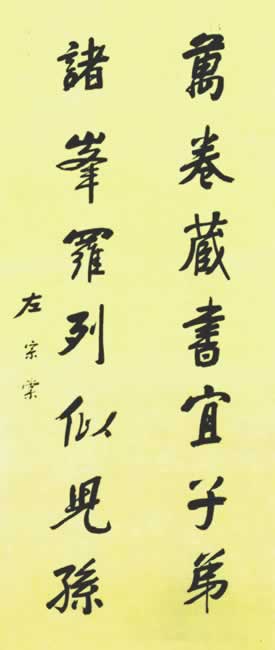 萬卷蔵書宜子弟
諸峯羅列似兒孫
左宗棠